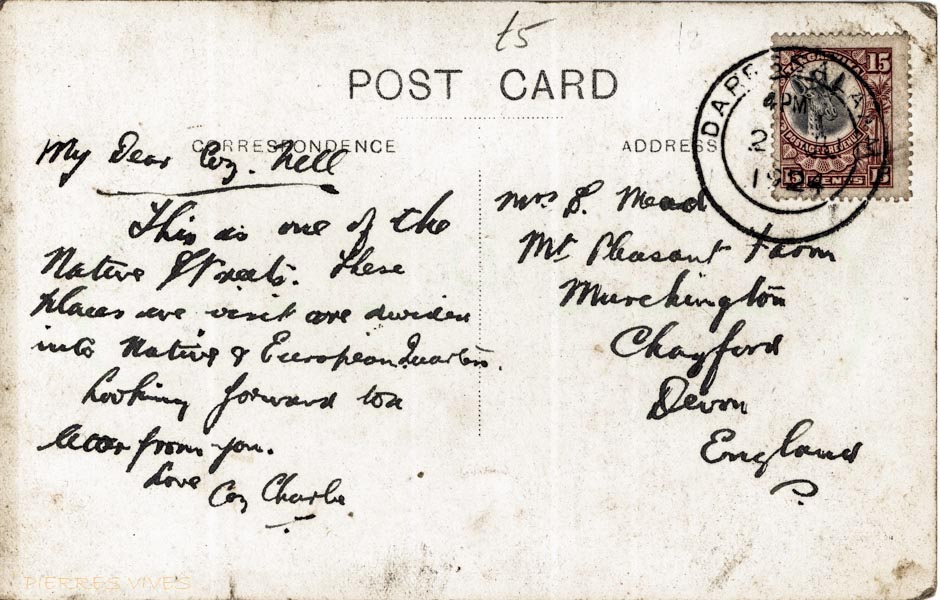 t5
POST CARD
CORRESPONDENCE
My Dear Coz. Nell
This is one of the
Native Streets. These
places we visit are divided
into Native & European Quarters.
Looking forward to a
letter from you.
Love
Coz Charlie
ADDRESS
Mrs S. Mead
Mt Pleasant Farm
Murchington
Chagford
Devon
England
DAR ES SALAAM
4 PM
2
1924
15
POSTAGE & REVENUE
15 CENTS 15
PIERRES VIVES